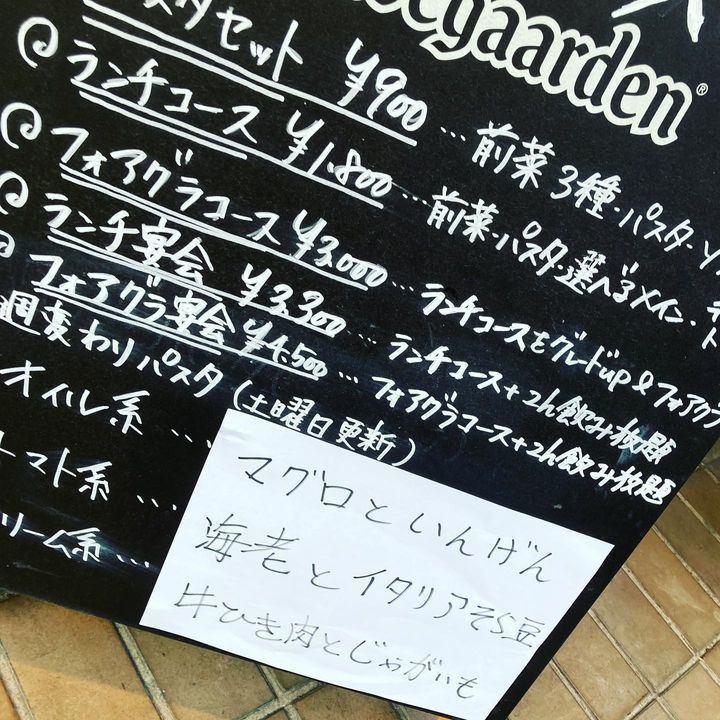 egaarden®
スタセット ¥900 … 前菜3種・パスタ・
ランチコース ¥1,800 … 前菜・パスタ・選べるメイン・
フォアグラコース ¥3,000 … ランチコースをグレードup &フォアグラ
ランチ宴会 ¥3,300 … ランチコース+2h飲み放題
フォアグラ宴会 ¥4,500 … フォアグラコース+2h飲み放題
週変わりパスタ(土曜日更新)
オイル系 …
トマト系 …
リーム系 …
マグロといんげん
海老とイタリアそら豆
牛ひき肉とじゃがいも